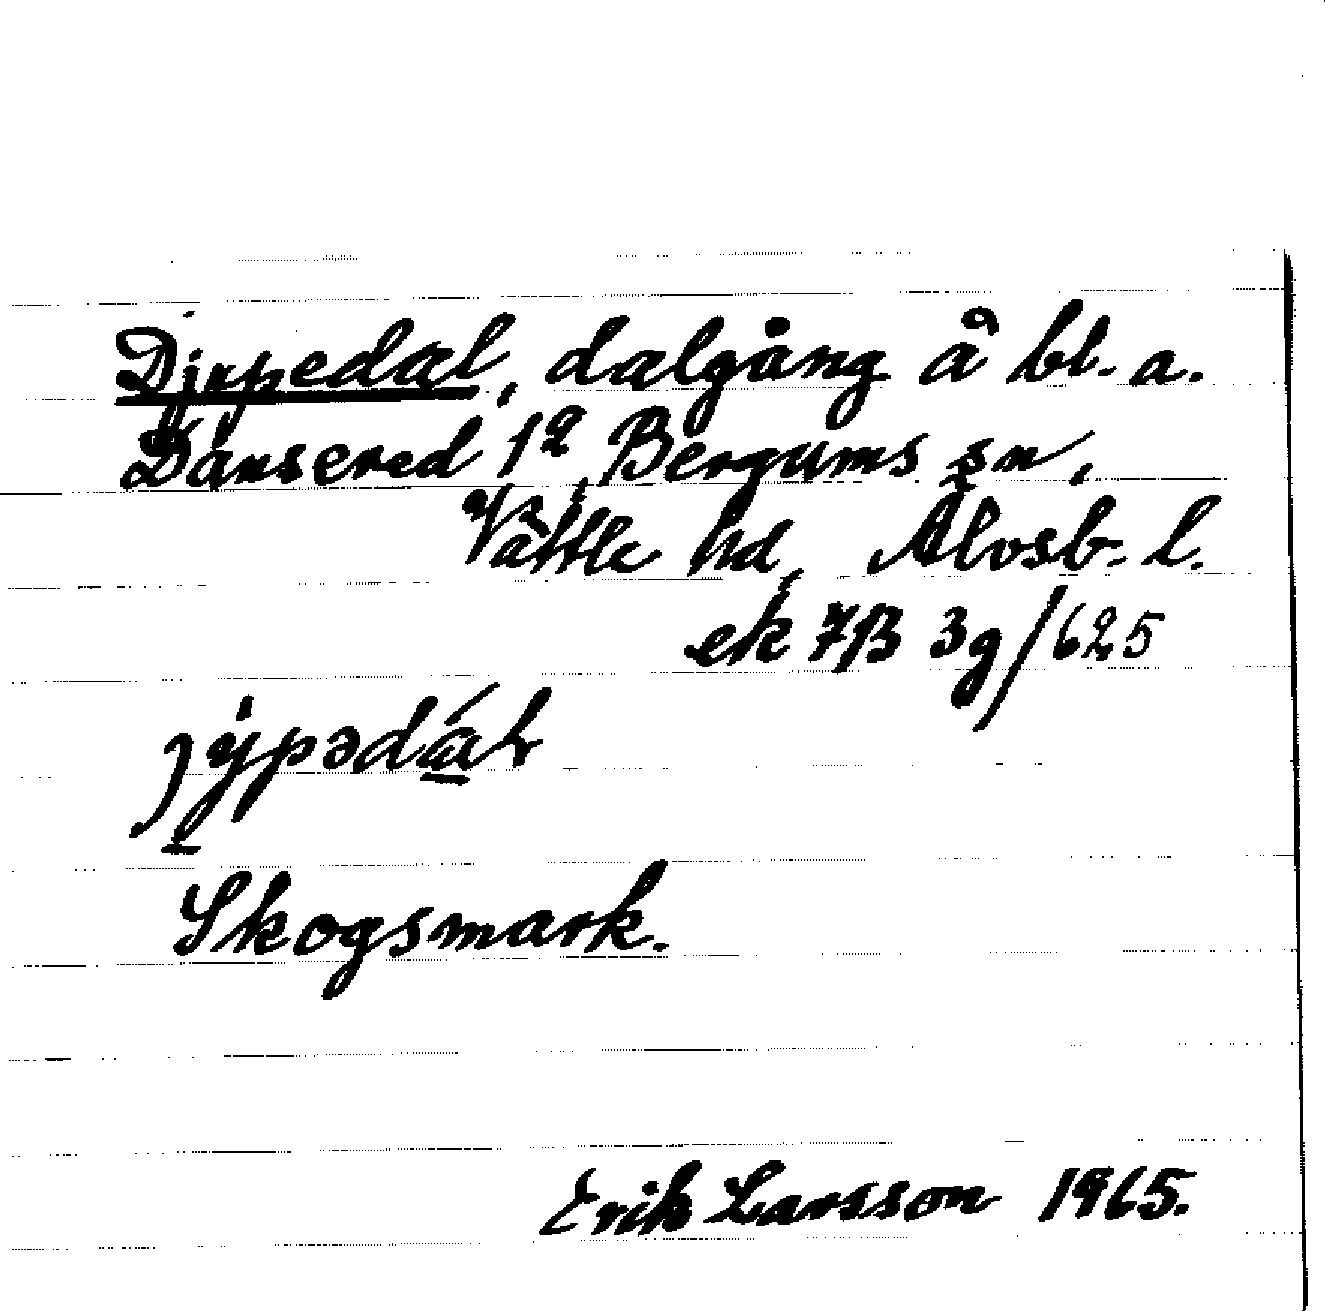 Djupedal, dalgång å bl. a.
Dansered 1², Bergums sn,
Vättle hd, Älvsb. l.
ek 7B 3g/625
jy̠pədá̠l
Skogsmark.
Erik Larsson 1965.